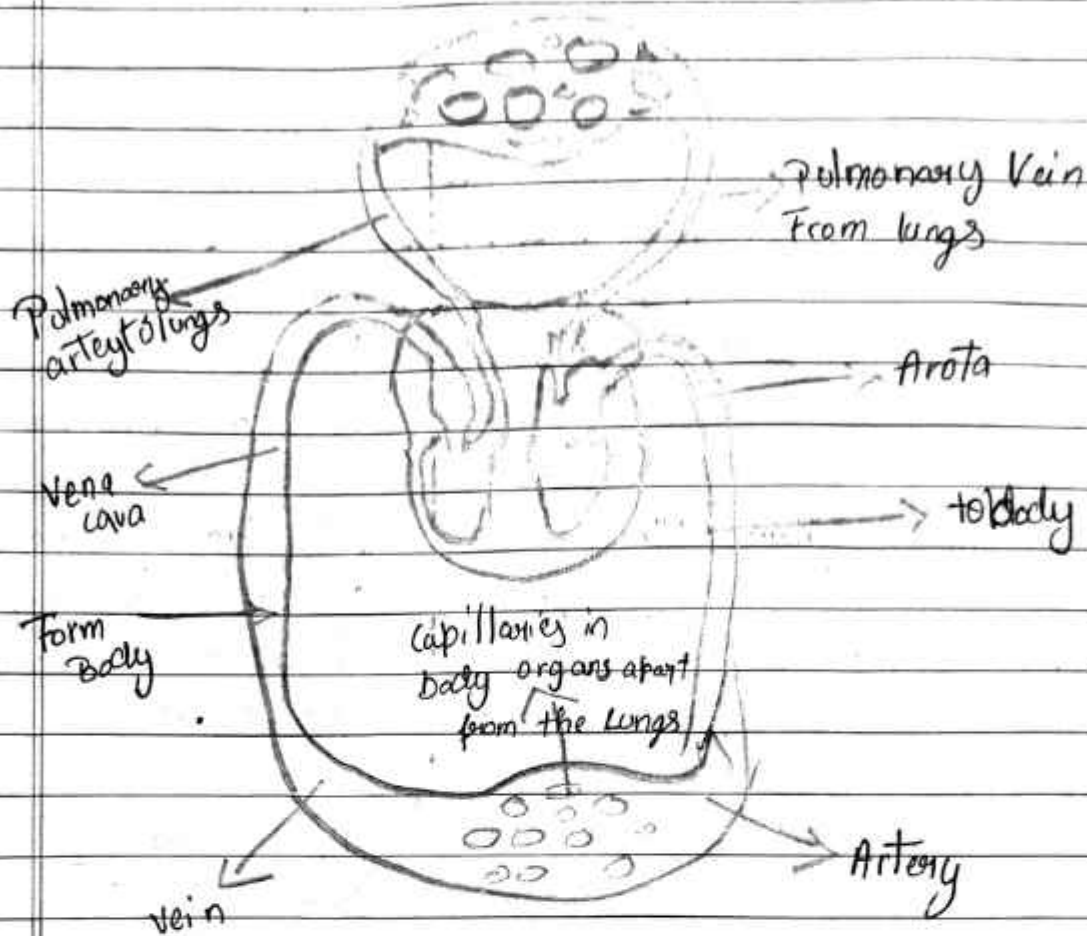 Pulmonary Vein
From lungs
Pulmonary
arteytolungs
Arota
Vena
cava
to body
Form
Body
Capillaries in
body organs apart
from the Lungs
Artery
vein